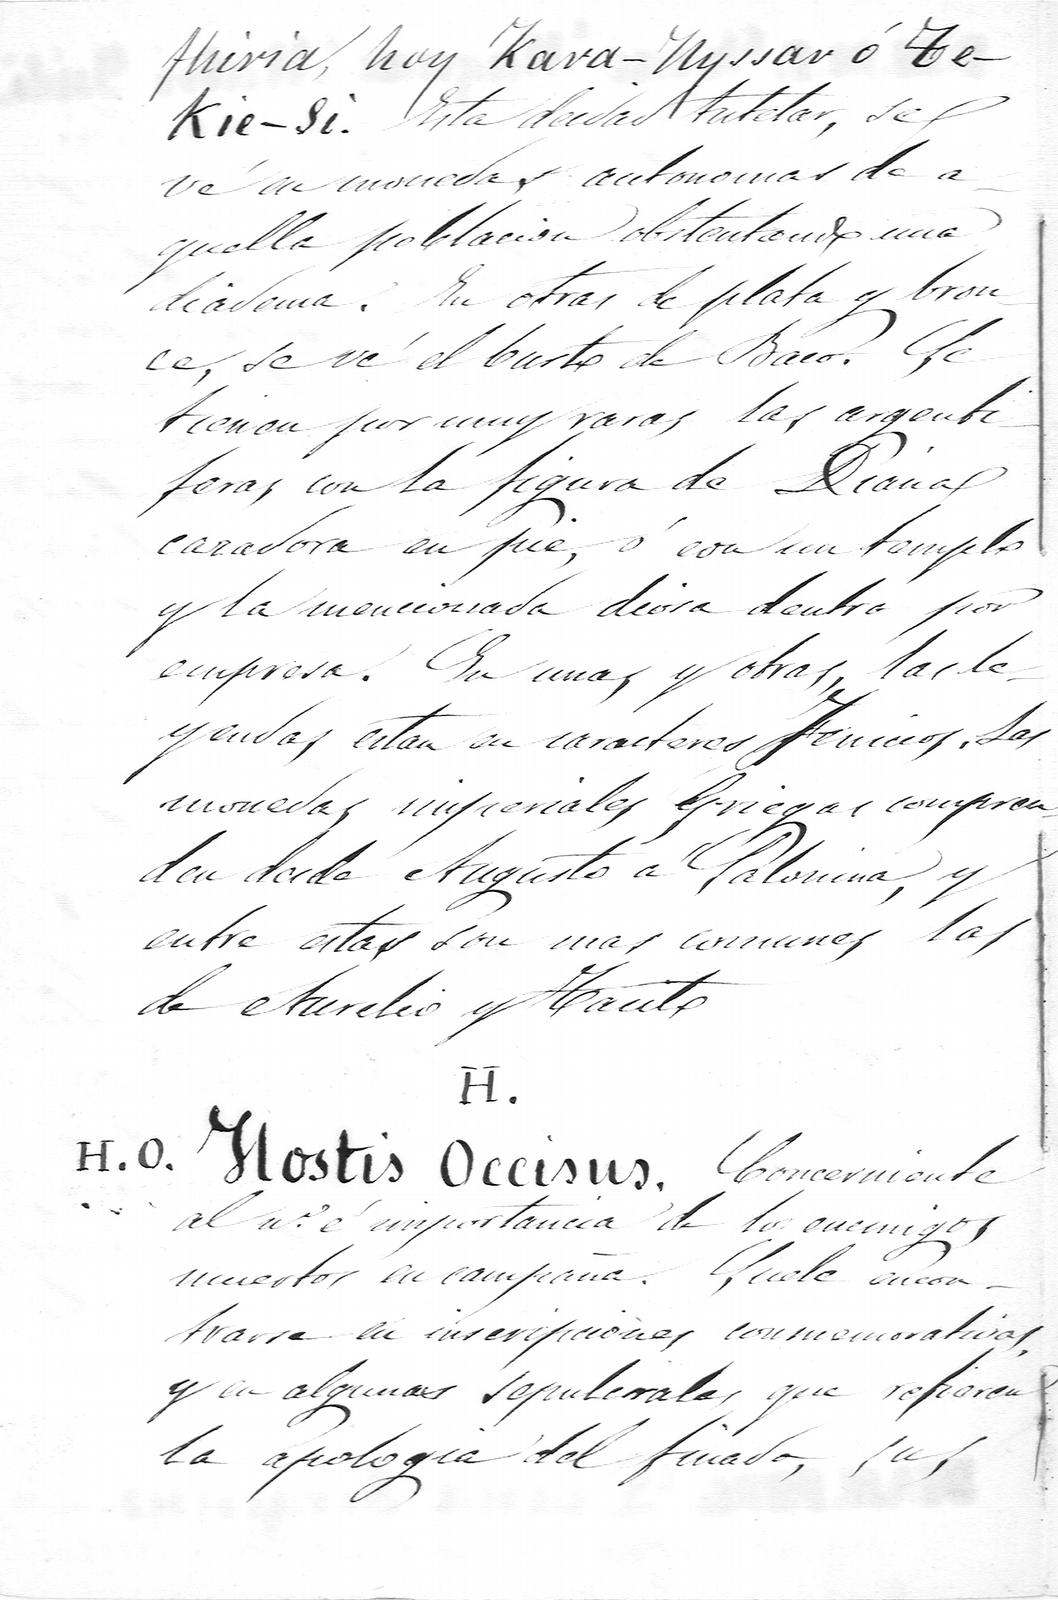 thiria, hoy Kara-Hyssar ó Te-
Kie-Si. Esta deidad tutelar, se
vé en monedas autonomas de a-
quella poblacion obstentando una
diadema. En otras de plata y bron-
ce, se vé el busto de Baco. Se
tienen por muy raras las argenti-
feras con la figura de Diana
cazadora en pie, ó con un templo
y la mencionada diosa dentro por
empresa. En unas y otras, las le-
yendas estan en caracteres Fenicios. Las
monedas imperiales Griegas compren-
den desde Augusto a Salonina, y
entre estas son mas comunes las
de Aurelio y
H.
H.O. Hostis Occisus. Concerniente
al nº é importancia de los enemigos
muertos en campaña. Suele encon-
trarse en inscripciones conmemorativas,
y en algunas sepulcrales que refieren
la apologia del finado, sus